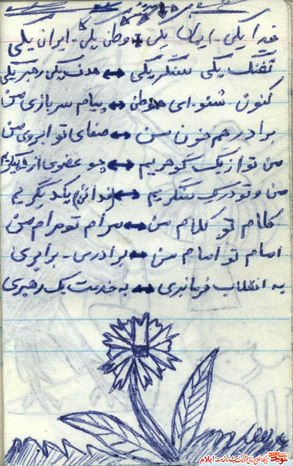 خدا یکی . ایمان یکی ↔ وطن یکی - ایران یکی
تفنگ یکی سنگر یکی ↔ هدف یکی رهبر یکی
کنون شنو ای هموطن ↔ پیام سربازی من
برادر هم خون من ↔ صفای تو آبروی من
من تو از یک گوهریم ↔ چو عضوی از
من و تو در یک سنگریم ↔ یکدیگریم
کلام تو کلام من ↔ مرام تو مرام من
امام تو امام من ↔ برادری - برابری
به انقلاب فرمانبری ↔ به خدمت یک رهبری